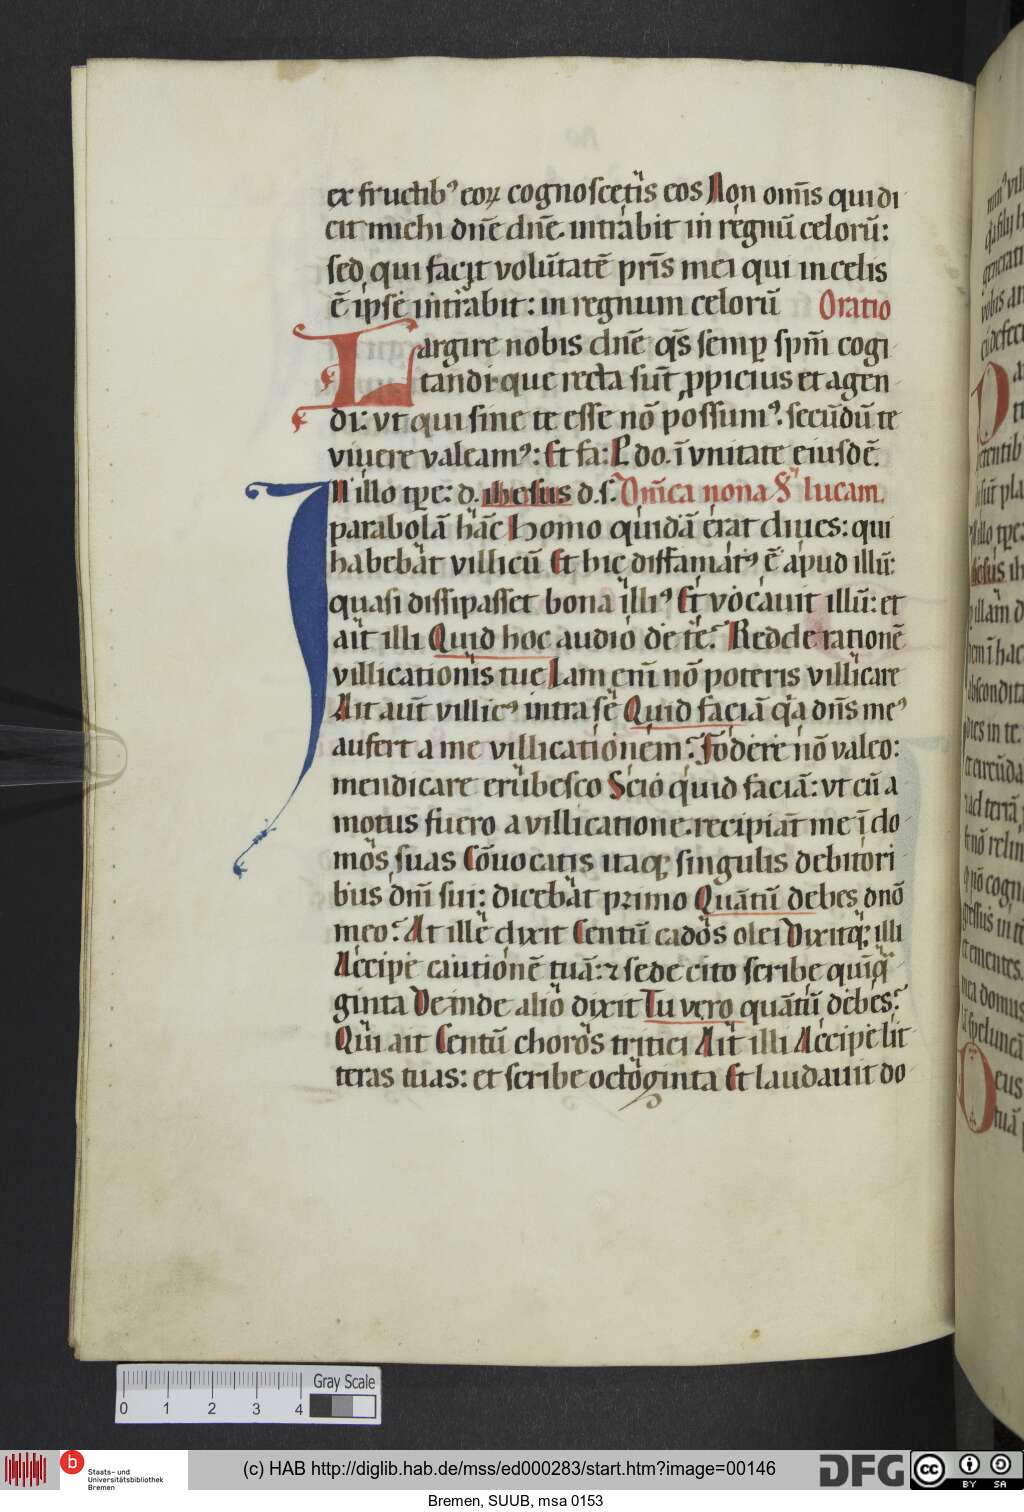 ex fructibꝰ eoꝝ cognoscetis eos Non om̄is qui di
cit michi dn̄e dn̄e. intrabit in regnū celorū:
sed qui facit volūtatē pr̄is mei qui in celis
ē ipse intrabit: in regnum celorū Oratio
Largire nobis dn̄e qs̄ semꝑ spm̄ cogi
tandi que recta sūt ꝓpicius et agen
di: vt qui sine te esse nō possumꝰ. secūdū te
viuere valeamꝰ: Et fa: P do. ī vnitate eiusdē.
IN illo tꝑe: d. ihesus d. s. Dn̄ica nona S lucam.
parabolā hāc Homo quidā erat diues: qui
habebat villicū Et hic diffamatꝰ ē apud illū:
quasi dissipasset bona illiꝰ Et vocauit illū: et
ait illi Quid hoc audio de te? Redde rationē
villicationis tue Iam eni nō poteris villicare
Ait aūt villicꝰ intra se Quid faciā qa dn̄s meꝰ
aufert a me villicationem? Fodere nō valeo:
mendicare erubesco Scio quid faciā: vt cū a
motus fuero a villicatione. recipiāt me ī do
mos suas Cōuocatis itaqꝫ singulis debitori
bus dn̄i sui: dicebat primo Quātū debes dn̄o
meo? At ille dixit Centū cados olei Dixitqꝫ illi
Accipe cautionē tuā: ⁊ sede cito scribe quīqua
ginta Deinde alio dixit Tu vero quātū debes?
Qui ait Centū choros tritici Ait illi Accipe lit
teras tuas: et scribe octoginta Et laudauit do
Gray Scale
0 1 2 3 4
b Staats- und
Universitätsbibliothek
Bremen
(c) HAB http://diglib.hab.de/mss/ed000283/start.htm?image=00146
DFG
cc BY SA
Bremen, SUUB, msa 0153